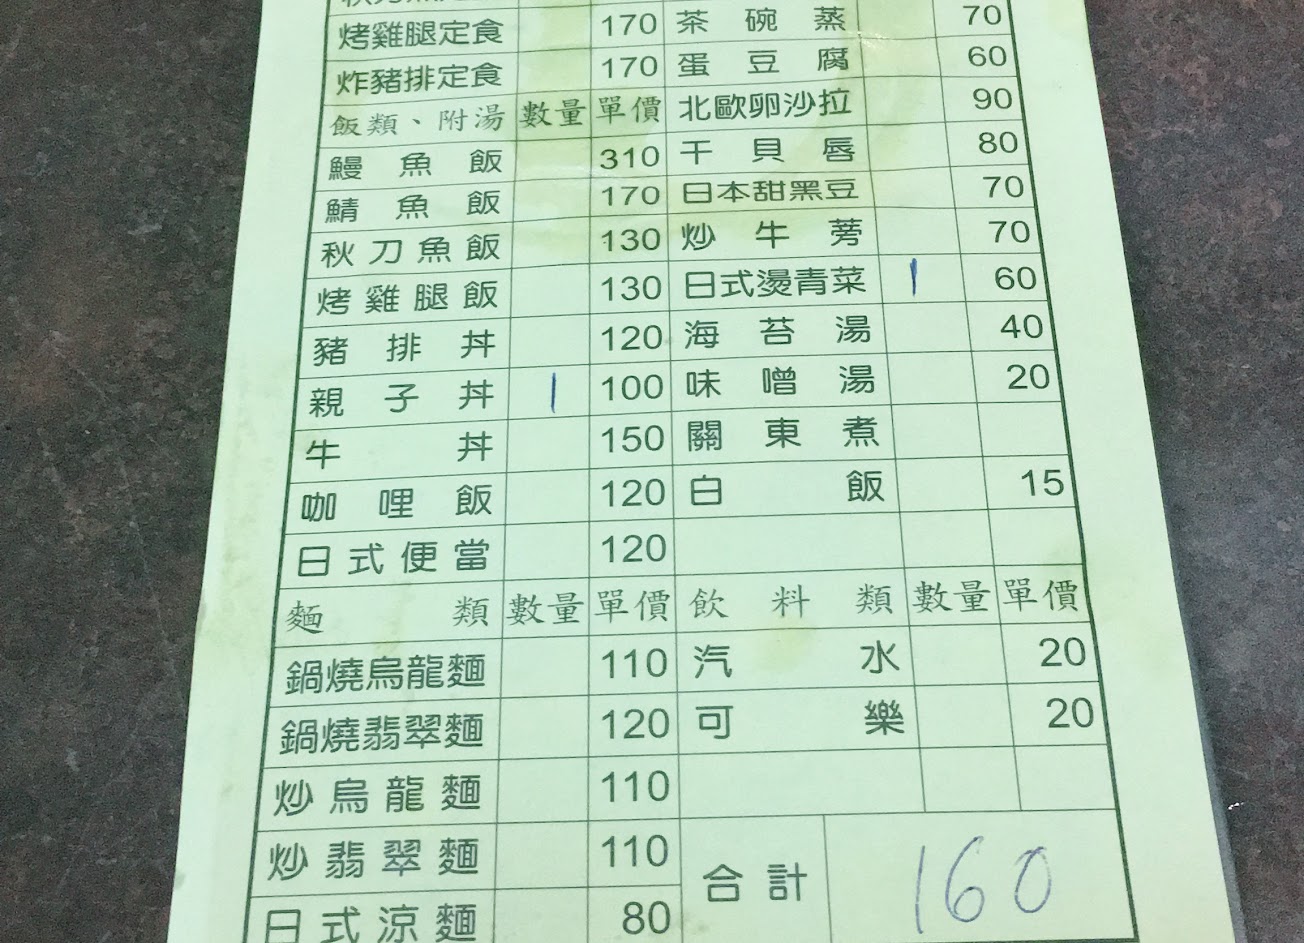 烤雞腿定食 170 茶碗蒸 70
炸豬排定食 170 蛋豆腐 60
飯類、附湯 數量 單價 北歐卵沙拉 90
鰻魚飯 310 干貝唇 80
鯖魚飯 170 日本甜黑豆 70
秋刀魚飯 130 炒牛蒡 70
烤雞腿飯 130 日式燙青菜 1 60
豬排丼 120 海苔湯 40
親子丼 1 100 味噌湯 20
牛丼 150 關東煮
咖哩飯 120 白飯 15
日式便當 120
麵類 數量 單價 飲料類 數量 單價
鍋燒烏龍麵 110 汽水 20
鍋燒翡翠麵 120 可樂 20
炒烏龍麵 110
炒翡翠麵 110 合計 160
日式涼麵 80